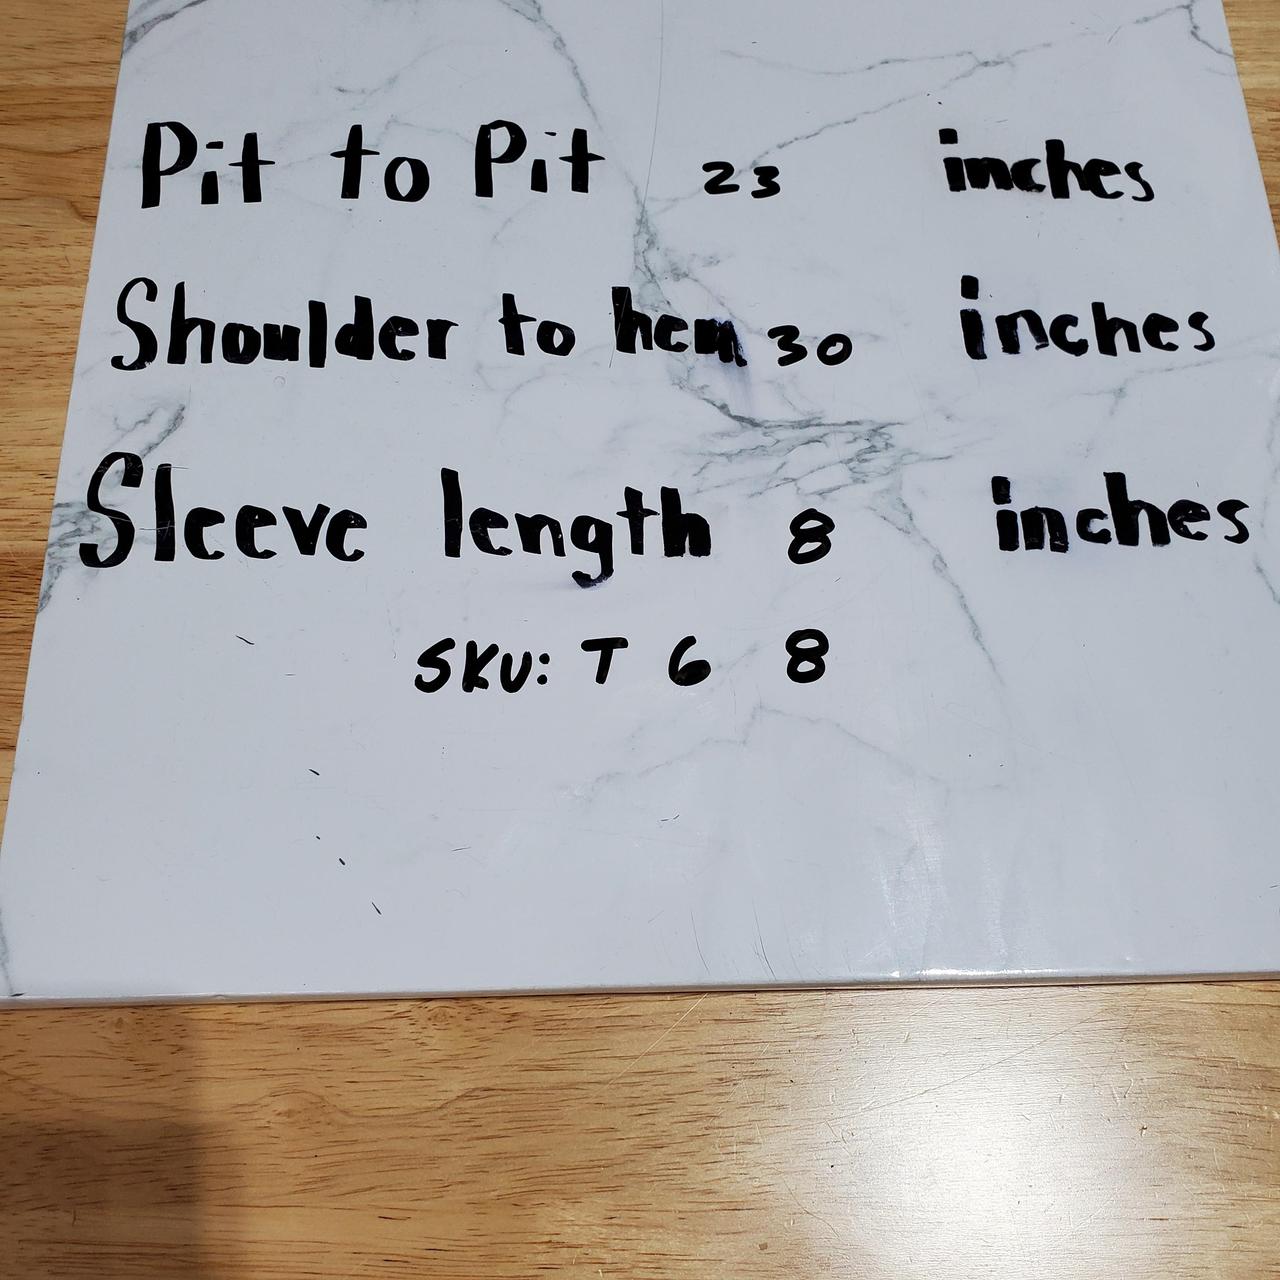 Pit to Pit 23 inches
Shoulder to hem 30 inches
Sleeve length 8 inches
SKU: T 6 8